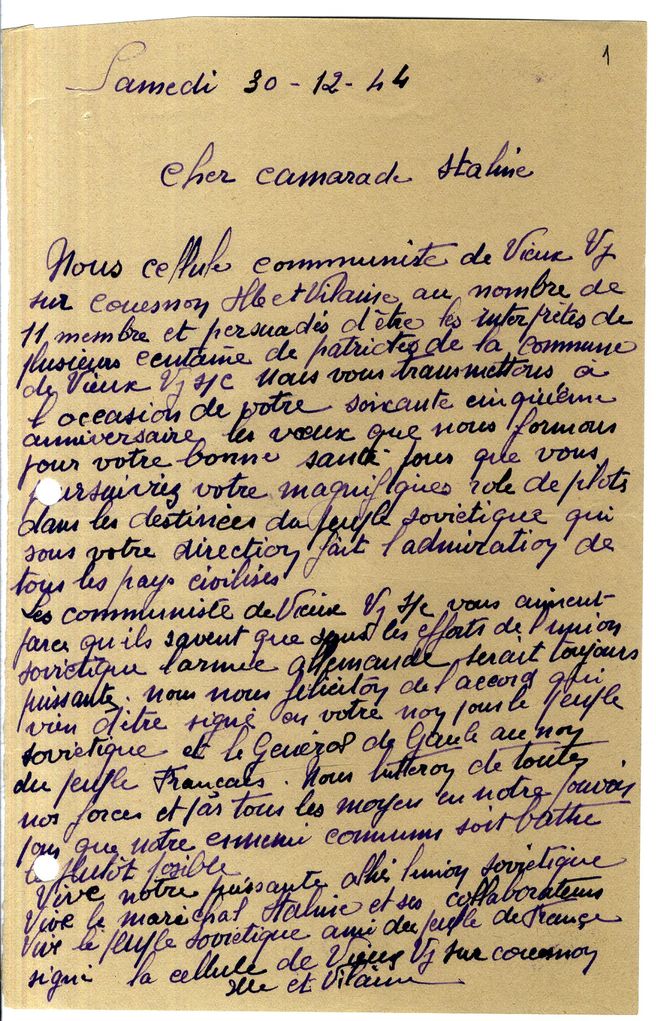 1
Samedi 30-12-44
Cher camarade Staline
Nous cellule communiste de Vieux Vy
sur couesnon Ille et Vilaine au nombre de
11 membre et persuadés d'être les interprètes de
plusieurs centaine de patriotes de la commune
de Vieux Vy s/c nous vous transmettons à
l'occasion de votre soixante cinquième
anniversaire les vœux que nous formons
pour votre bonne santé pour que vous
poursuiviez votre magnifiques role de pilote
dans les destinées du peuple soviétique qui
sous votre direction fait l'admiration de
tous les pays civilisés
Les communiste de Vieux Vy s/c vous aiment
parce qu'ils savent que sans les efforts de l'union
soviétique l'armée allemande serait toujours
puissante. nous nous féliciton de l'accord qui
vien d'être signé en votre nom pour le peuple
soviétique et le Général de Gaule au nom
du peuple Francais. Nous lutteron de toutes
nos forces et par tous les moyen en notre pouvoir
pour que notre ennemi commun soit battue
le plutôt posible
Vive notre puissante allié l'union soviétique
Vive le maréchal Staline et ses collaborateurs
Vive le peuple soviétique ami du peuple de France
signé la cellule de Vieux Vy sur couesnon
Ille et Vilaine